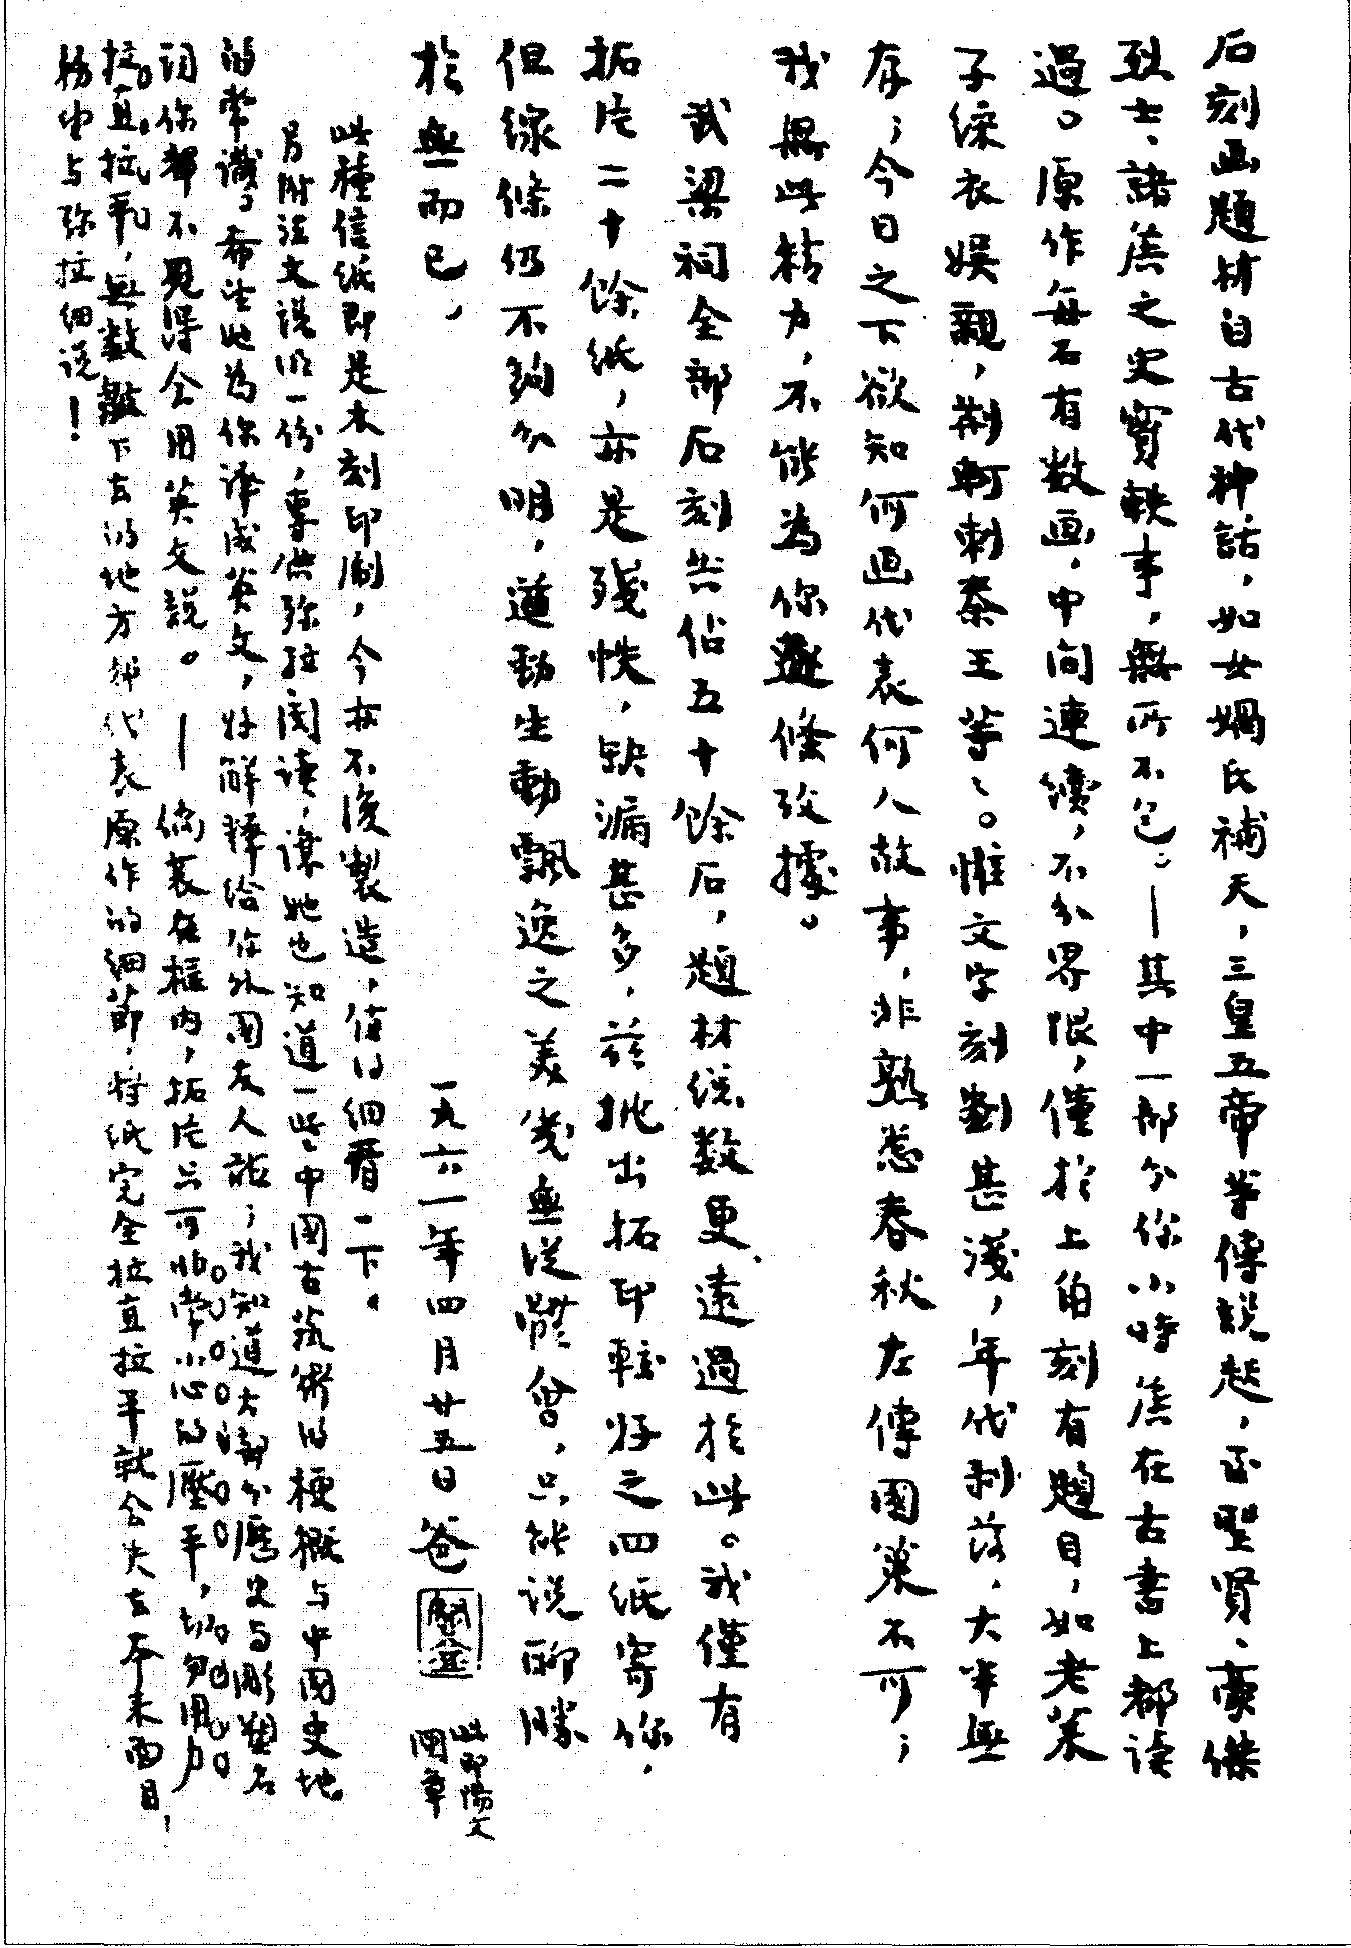 石刻画題材自古代神話，如女媧氏補天，三皇五帝等傳説起，至聖賢、豪傑
烈士、諸侯之史實軼事，無所不包。——其中一部分你小時候在古書上都讀
過。原作每石有数画，中間連續，不分界限，僅於上角刻有題目，如老萊
子綵衣娱親，荆軻刺秦王等、。惟文字刻劃甚淺，年代剥落，大半無
存；今日之下欲知何画代表何人故事，非熟悉春秋左傳國策不可；
我無此精力，不能為你逐條攷據。
武梁祠全部石刻共佔五十餘石，題材總数更遠過於此。我僅有
拓片二十餘紙，亦是殘帙，缺漏甚多，兹挑出拓印較好之四紙寄你，
但線條仍不夠分明，遒勁生動飄逸之美幾無從體會，只能説聊勝
於無而已，
一九六一年四月廿五日爸
此即陽文
圖章
此種信紙即是木刻印刷，今亦不復製造，值得細看一下。
另附法文説明一份，專供弥拉閲读，讓她也知道一些中國古藝術的梗概与中國史地
的常識。希望她為你译成英文，好解釋给你外國友人聽；我知道大部分歷史与雕塑名
詞你都不見得会用英文説。——倘裝在框内，拓片只可非常小心的壓平，切勿用力
拉直拉平，無数皺下去的地方都代表原作的细節，将纸完全拉直拉平就会失去本来面目！
務必与弥拉细说！